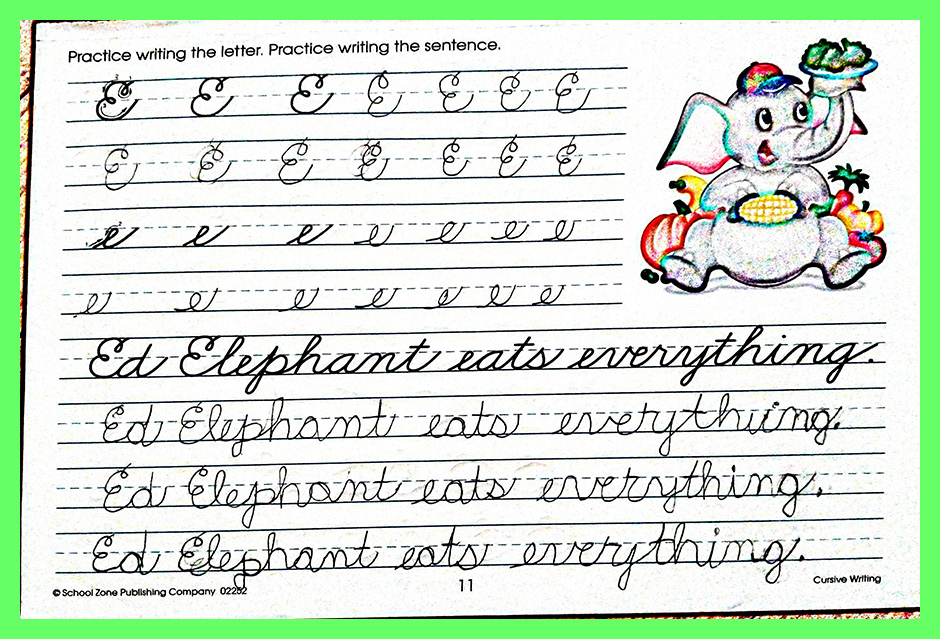 Practice writing the letter. Practice writing the sentence.
E E E E E E E
E E E E E E E
e e e e e e e
e e e e e e e
Ed Elephant eats everything.
Ed Elephant eats everythuing.
Ed Elephant eats everything.
Ed Elephant eats everything.
© School Zone Publishing Company 11 Cursive Writing